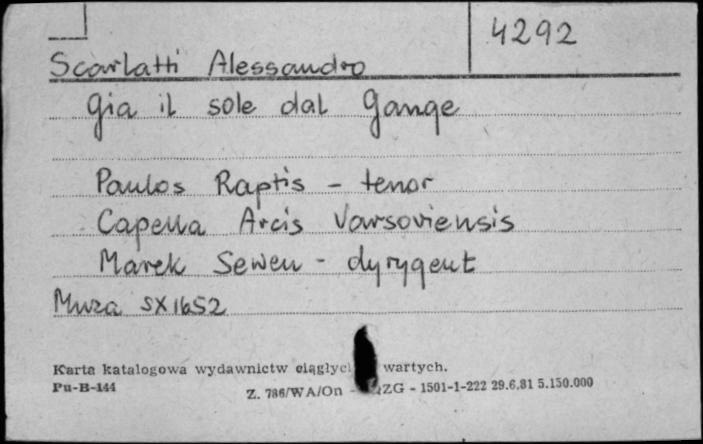 4292
Scarlatti Alessandro
Gia il sole dal Gange
Paulos Raptis - tenor
Capella Arcis Varsoviensis
Marek Sewen - dyrygent
Muza SX1652
Karta katalogowa wydawnictw ciągłyc wartych.
Pu-B-144
Z. 786/WA/On - ZG - 1501-1-222 29.6.81 5.150.000